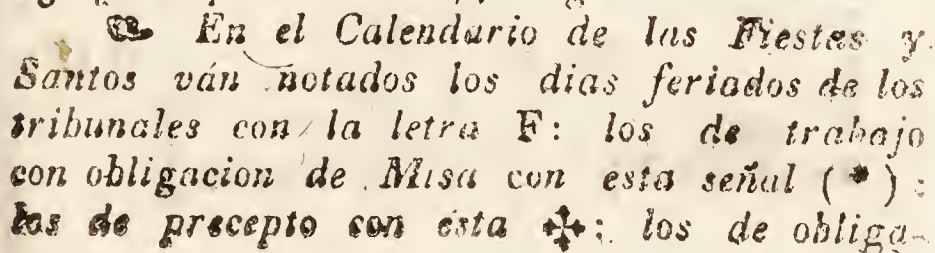 ☙ En el Calendario de las Fiestas y
Santos ván notados los dias feriados de los
tribunales con la letra F: los de trabajo
con obligacion de Misa con esta señal (*):
los de precepto con ésta ✣: los de obliga-